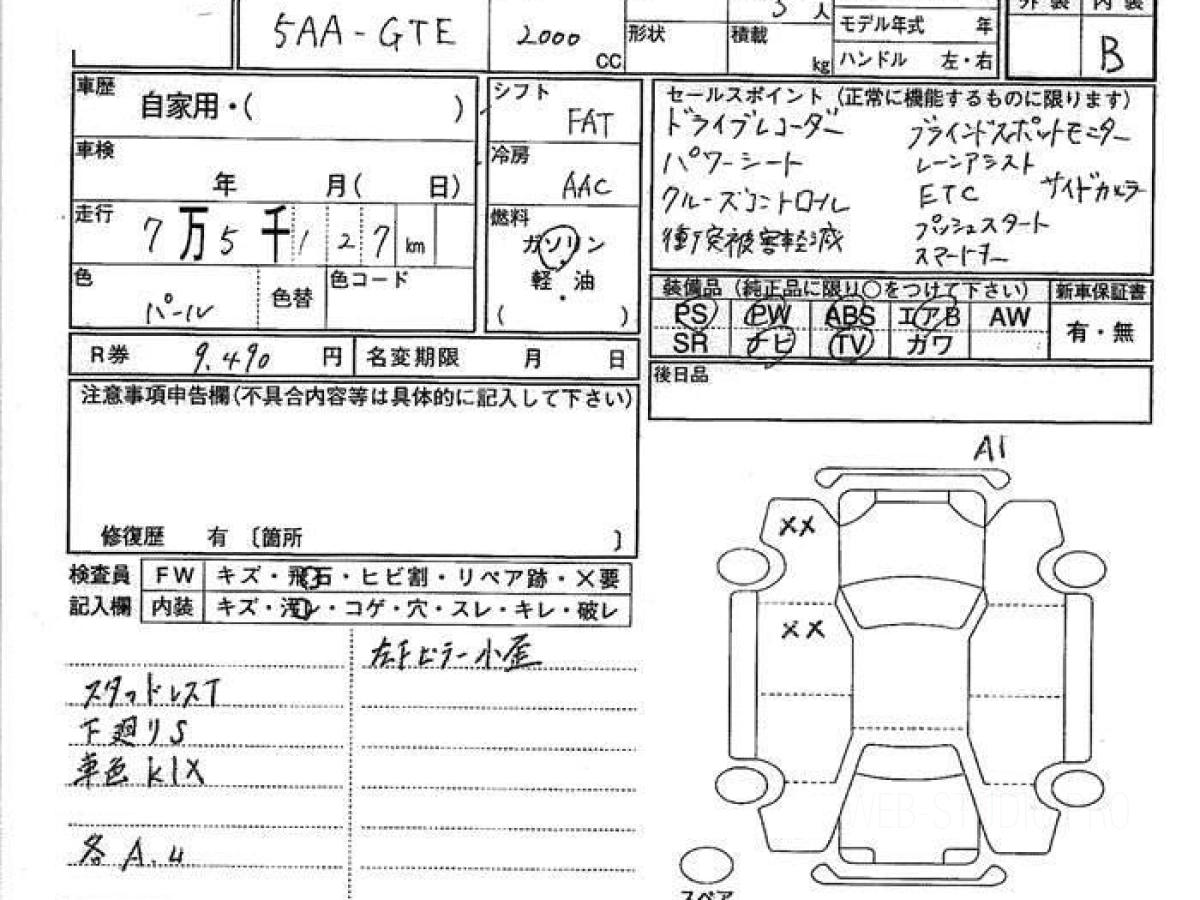 5AA-GTE
2000 CC
形状
積載 kg
5人
モデル年式 年
ハンドル 左・右
外装 内装
B
車歴
自家用・( )
車検
年 月( 日)
走行
7万5千127km
色
パール
色替
色コード
シフト
FAT
冷房
AAC
燃料
ガソリン
・
軽油
・
( )
R券 9.490 円
名変期限 月 日
セールスポイント (正常に機能するものに限ります)
ドライブレコーダー ブラインドスポットモニター
パワーシート レーンアシスト
クルーズコントロール ETC サイドカメラ
衝突被害軽減 プッシュスタート
スマートキー
装備品 (純正品に限り○をつけて下さい) 新車保証書
PS PW ABS エアB AW
SR ナビ TV ガワ
有・無
後日品
注意事項申告欄(不具合内容等は具体的に記入して下さい)
修復歴 有 〔箇所 〕
検査員 FW キズ・飛石・ヒビ割・リペア跡・×要
記入欄 内装 キズ・汚レ・コゲ・穴・スレ・キレ・破レ
左Fピラー小歪
スタッドレスT
下廻りS
車色K1X
各A.U
A1
XX
XX
WEB-STUDIO.PRO
スペア